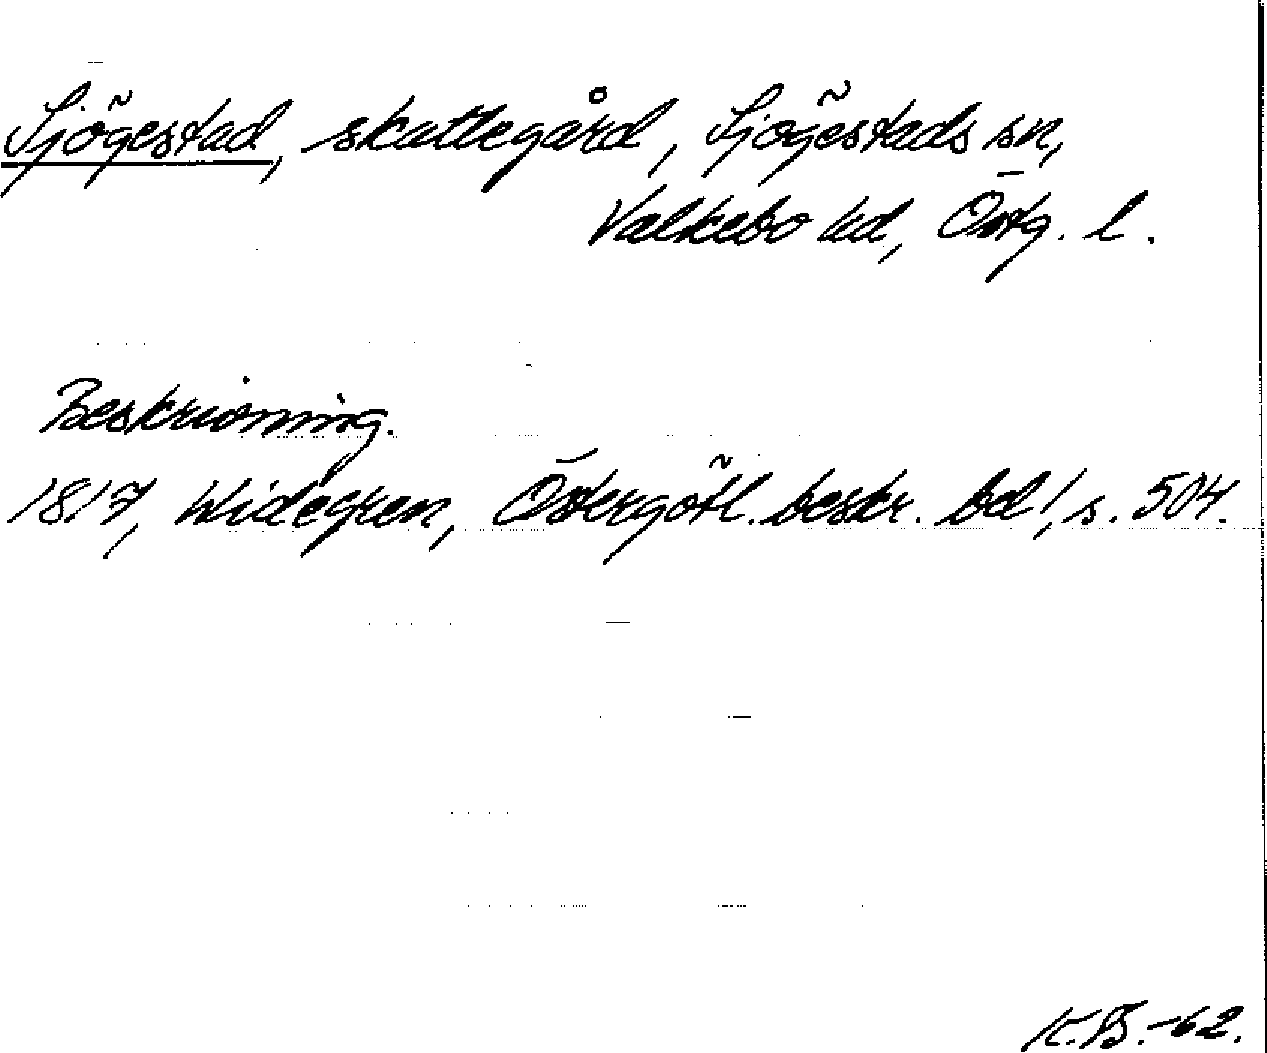 Sjögestad, skattegård, Sjögestads sn,
Valkebo hd, Östg. l.
Beskrivning.
1817, Widegren, Östergötl. beskr. bd 1, s. 504.
K.B. -62.